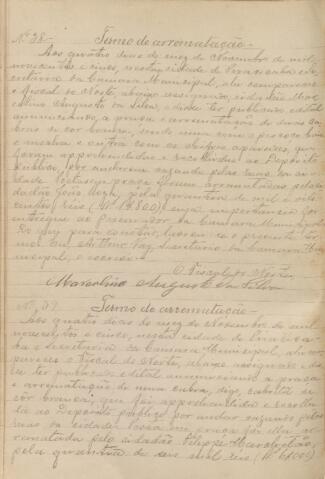 Nº 38 - Termo de arrematação -
Aos quatro dias do mez de Novembro de mil
novecentos e cinco, nesta cidade de Piracicaba e Se-
cretaria da Camara Municipal, ahi compareceu
o Fiscal do Norte, abaixo assignado, cidadão Mar-
colino Augusto da Silva, e disse ter publicado edital
annunciando a praça e arrematação de duas ca-
bras de cor branca, sendo uma com o pescoço
e outra com as orelhas
foram apprehendidas e recolhidas ao Deposito
Publico por andarem vagando pelas ruas da ci-
dade foram arrematadas pelo ci-
dadão João pela quantia de mil e oito-
centos reis (Rs 1$800) cuja importancia foi
entregue ao Procurador da Camara Municipal.
E para constar lavrou-se o presente ter-
mo. Eu Arthur Vaz, Secretario da Camara Muni-
cipal, o escrevi.
O Fiscal do Norte
Marcolino Augusto da Silva
Nº 39 Termo de arrematação -
Aos quatro dias do mez de Novembro de mil
novecentos e cinco, nesta cidade de Piracicaba
e Secretaria da Camara Municipal, ahi com-
pareceu o Fiscal do Norte, abaixo assignado e dis-
se ter publicado edital annunciando a praça
e arrematação de uma cabra, digo, cabrita de
cor branca, que foi apprehendida e recolhi-
da ao Deposito publico por andar vagando pelas
ruas da cidade em praça foi ella ar-
rematada pelo cidadão Felippe
pela quantia de seis mil reis (Rs 6$000)